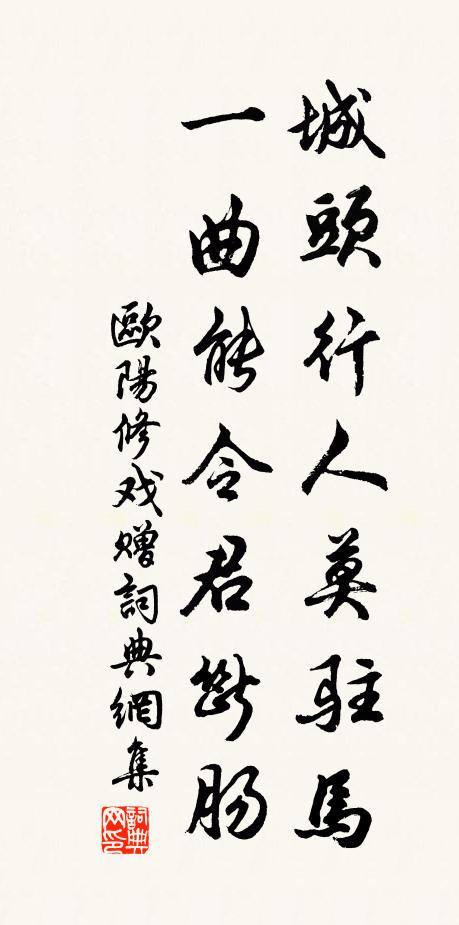 城頭行人莫駐馬
一曲能令君斷肠
歐陽修戏贈詞典網集
詞典网印